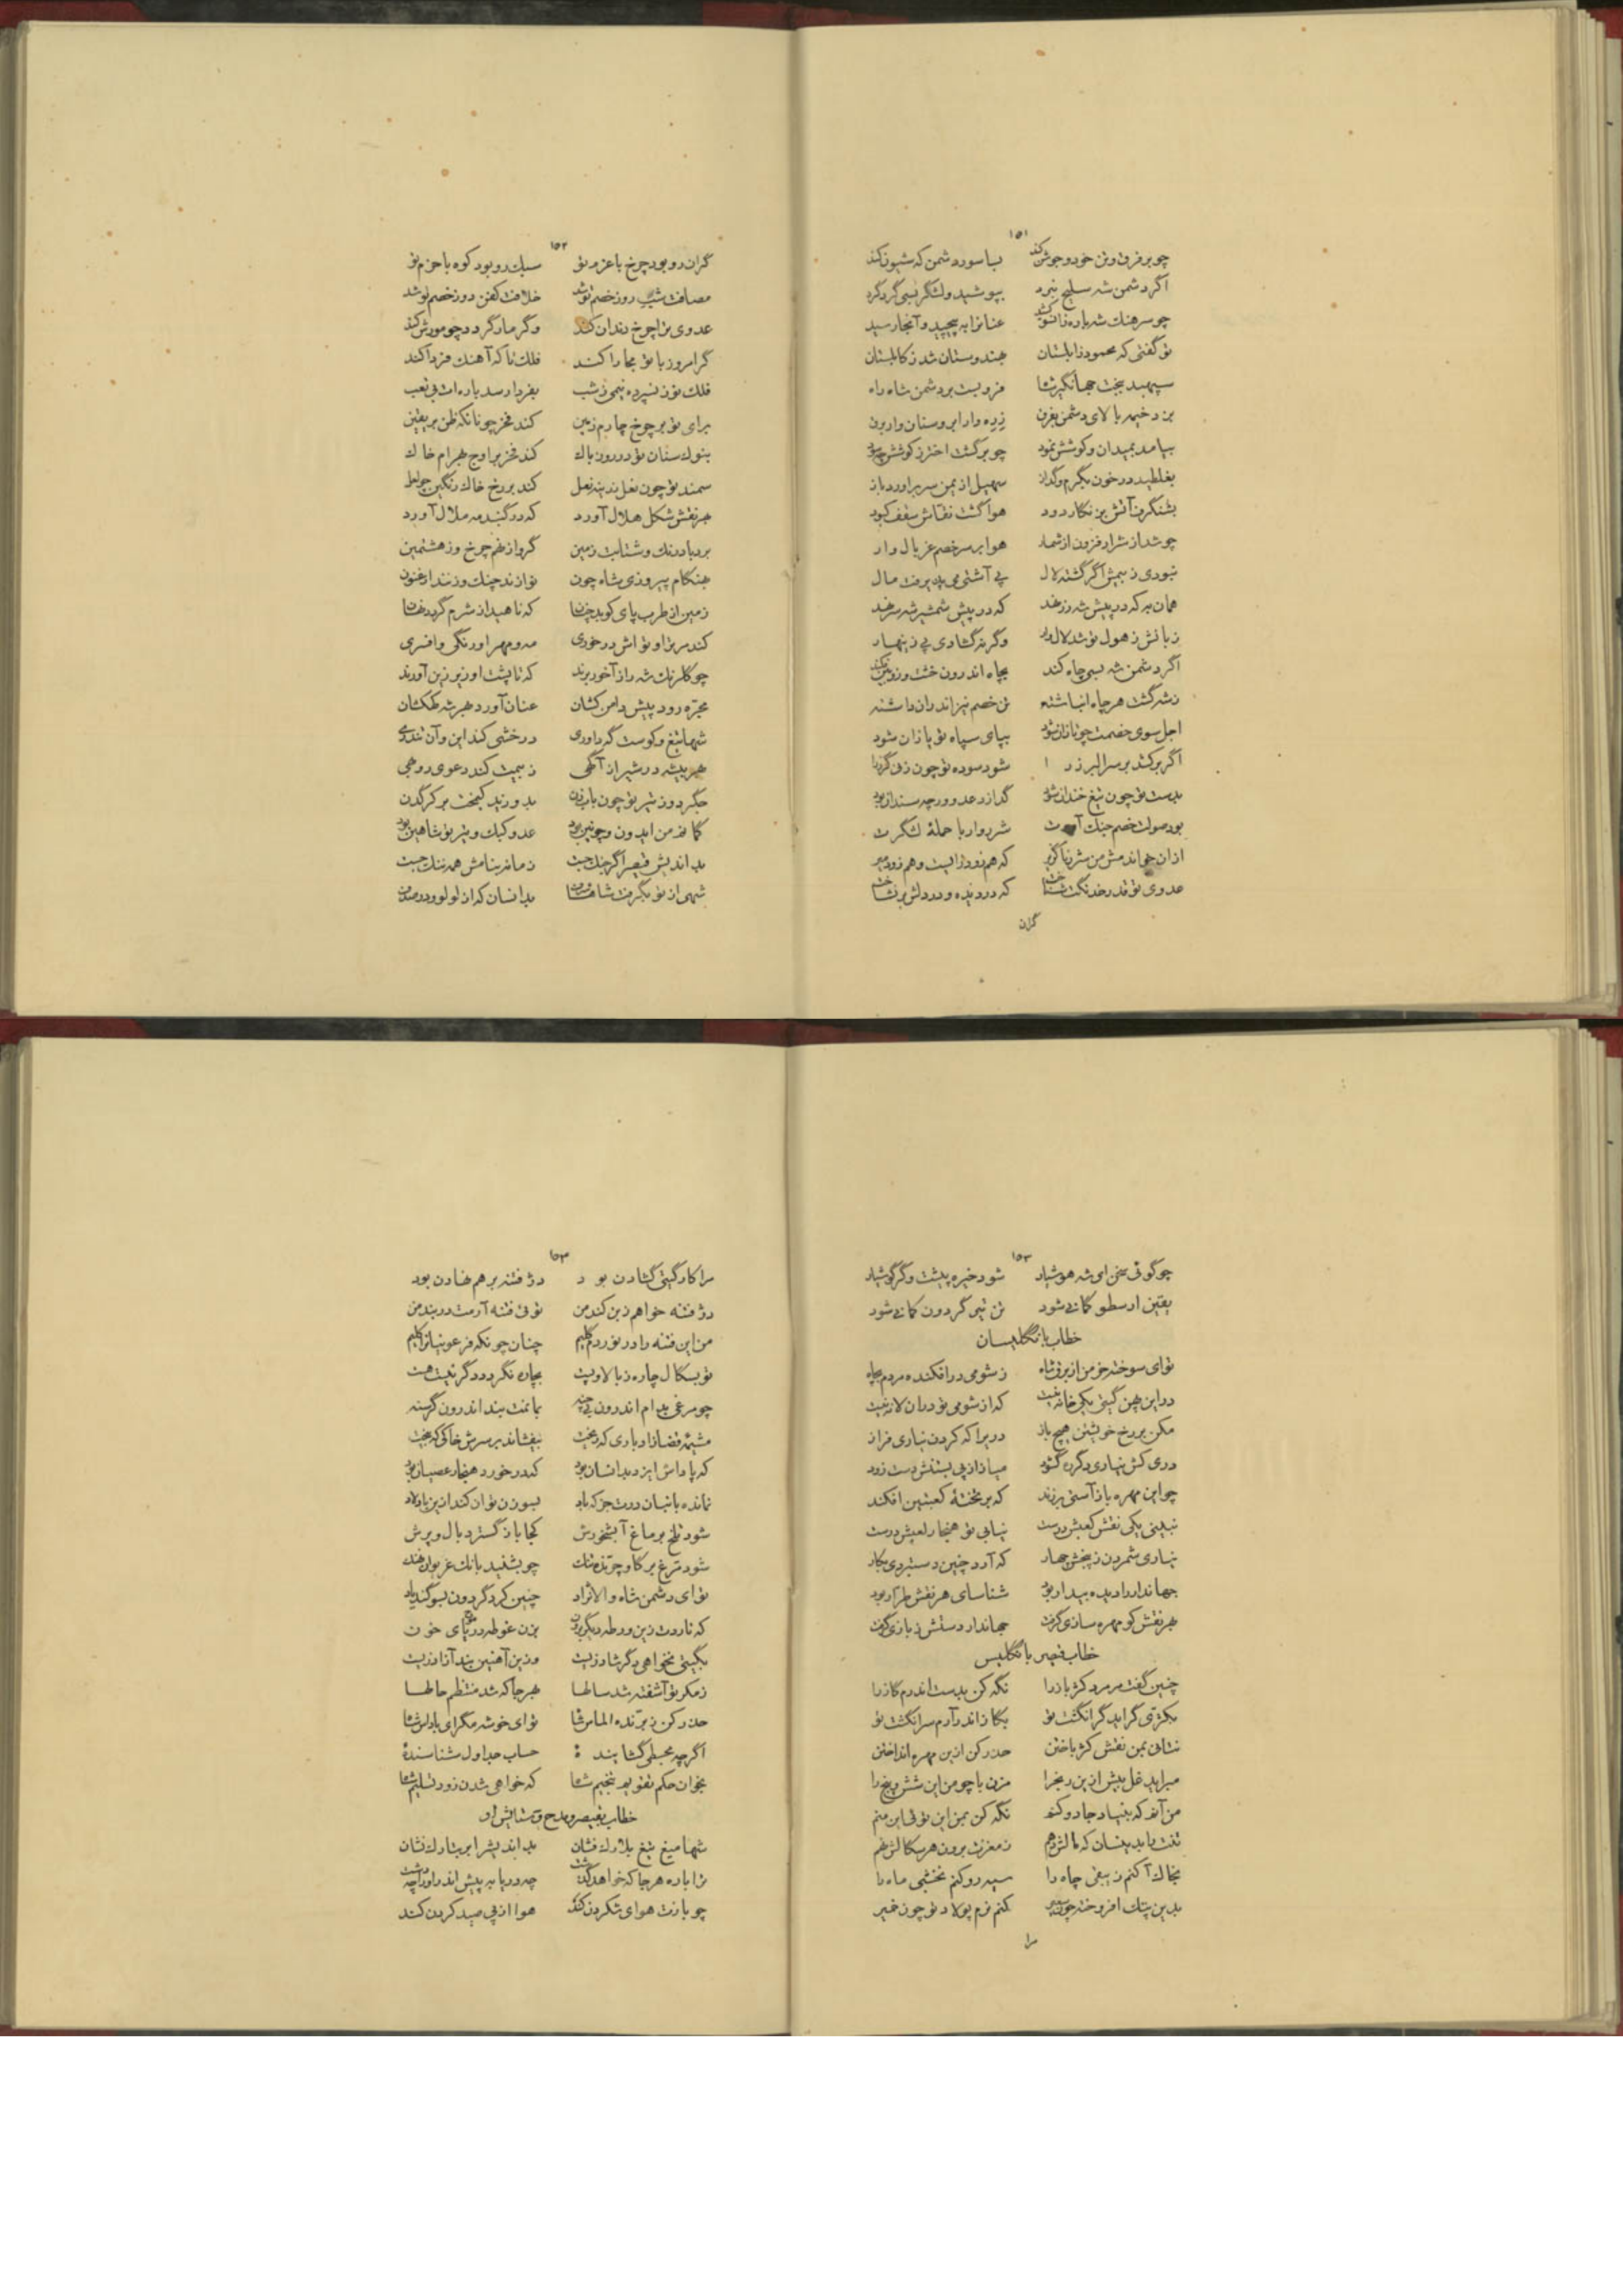 ۱۵۱
چو بر فرق و تن خود و جوشن کند بسا سور دشمن که شیون کند
اگر دشمن شه بسیج نبرد بپوشید و لشگر بسی گرد کرد
چو سرهنگ شه باره زانسو عنانرا بپیچید و آنجا رسید
تو گفتی که محمود زابلستان بهندوستان شد ز کابلستان
سپهبد ببخت جهانگیر شاه فرو بست بر دشمن شاه راه
بزد خیمه بالای دشمن زره دار ابر و سنان دار برق
بیامد بمیدان و کوشش نمود چو برگشت اختر ز کوشش چه سود
بغلطید در خون سهیل از یمن سر برآورد باز
بشنگرف آتش بر نگار دود هوا گشت نقاش سقف کبود
چو شد از شرار فزون از شمار هوا بر سر خصم غربال وار
نبودی ز بیمش اگر گشته لال پی آشتی می پذیرفت مال
همان به که در پیش شه که در پیش شمشیر شه سر نهد
زبانش ز هول تو شد لال وار وگرنه گشادی پی زینهار
اگر دشمن شه بسی چاه کند بچاه اندرون خشت و زوبین
ز شه گشت هر چاه انباشته تن خصم نیز اندران داشته
اجل سوی خصمت چو تازان شود بپای سپاه تو یازان شود
اگر برکشد بر سر البرز را شود سوده تو چون زنی گرز را
بدست تو چون تیغ خندان شود گدازد عدو ور چه سندان بود
بود صولت خصم جنگ شرروار با حملهٔ لشگرت
ازان خواندمش من شرر ناگزیر که هم زود زایست و هم زود میر
عدوی تو قدر خدنگت شناخت که در دیده و در دلش برنشاخت
گران
۱۵۲
گران رو بود چرخ با عزم تو سبک رو بود کوه با حزم تو
مصافت شب روز خصم تو شد خلافت کفن دوز خصم تو شد
عدوی ترا چرخ دندان کند وگر مار گردد چو مورش کند
گر امروز با تو مجارا کند فلک تا که آهنگ فردا کند
فلک تو ز نسپرده نیمی ز شب بفردا رسد باره ات بی تعب
برای تو بر چرخ چارم زمین کند فخر چونانکه ظن بر یقین
بنوک سنان تو در روز باک کند فخر بر اوج بهرام خاک
سمند تو چون نعل کند بر رخ خاک رنگین چو لعل
بهر نقش شکل هلال آورد که در گنبد مه ملال آورد
برد باد رنگ و شتابت زمین گرو از نهم چرخ وز هشتمین
بهنگام پیروزی شاه چون نوازند چنگ و زنند ارغنون
زمین از طرب پای کوبد چنان که ناهید از شرم گردد نهان
کند سر برا و تو اش در خوری مه و مهر اورنگی و افسری
چو گلرنگ شه را ز آخور برند که تا پشت او زیر زین آورند
مجرّه رود پیش دامن کشان عنان آورد بهر شه کهکشان
شها تیغ و کوست گه داوری درخشی کند این و آن تندری
بهر بیشه در شیر از آگهی ز بیمت کند دعوی روبهی
جگر دوز تیر تو چون باب زن بدوزد کیمخت بر کرگدن
گمانم من ایدون و چونین بود عدو کبک و تیر تو شاهین بود
بداندیش قیصر اگر جنگ جست زمانه بنامش همه ننگ جست
شهی از تو بگرفت شاها بدانسان که از لولو
۱۵۳
چو گوئی سخن ای شه هوشیار شود خیره پیشت وگر گوشیار
یقین ارسطو گمانی شود تن تیر گردون کمانی شود
خطاب بانگلیسان
تو ای سوخته خرمن از برق شاه ز شومی درافکنده مردم بچاه
در این پهن گیتی یکی خانه نیست که از شومی تو در آن لانه نیست
مکن بر رخ خویشتن هیچ باز دریرا که کردن نیاری فراز
دری کش نیاری دگر ره گشود مبادا ز پی بستنش دست زود
چو این مهره باز آستی برزند که بر تختهٔ کعبتین افکند
نبینی یکی نقش کعبش درست نیابی تو هنجار لعبش درست
نیاری شمردن ز پنجش چهار که آرد چنین دستبردی بکار
جهاندار را دیده بیدار بود شناسای هر نقش طرار بود
بهر نقش کو مهره سازی گرفت جهاندار دستش ز بازی گرفت
خطاب قیصر بانگلیس
چنین گفت مر مرد کژباز را نگه کن بدست اندرم گاز را
بکژی گراید گر انگشت تو بگاز اندر آرم سرانگشت تو
نتانی بمن نقش کژ باختن حذر کن ازین مهره انداختن
میراید غل بیش ازین رنجرا مزن با چو من این شش و پنج را
من آنم که بنیاد جادو کنم نگه کن بمن این توئی این منم
تنت باید ینسان که مالش دهم ز مغزت برون هر سگالش نهم
بخاک آکنم زیبقی چاه را سیه رو کنم نخشبی ماه را
بدین پتک افروخته چون سعیر کنم نرم پولاد تو چون خمیر
مرا
۱۵۳
مرا کار گیتی گشادن بود در فتنه بر هم نهادن بود
در فتنه خواهم زبن کند من توئی فتنه آرمت در بند من
من این فتنه را در نوردم گلیم چنان چونکه فرعونیانرا کلیم
تو بسگال چاره ز بالا و پست بچاره نگردد دگر نیست هست
چو مرغی بدام اندرون بی چنه بمانمت ببند اندرون گرسنه
مشیمهٔ قضا زاد باری که ریخت بیفشاند بر سرش خاکی که بیخت
که پاداش ایزد بدانسان بود که در خورد هنجار عصیان بود
نمانده بانبان درت جز که باد بسوزن توان کند ازین باد لاد
شود تلخ بر ماغ آبشخورش کجا باز گسترد بال و پرش
شود مرغ بر گاو چو بشنید بانگ غریو پلنگ
تو ای دشمن شاه والا نژاد چنین کرد گردون بسوگند یاد
که نارد ت زین ورطه دیگر برون بزن غوطه در موج دریای خون
بگیتی نخواهی دگر شاد زیست وزین آهنین بند آزاد زیست
ز مکر تو آشفته شد سالها بهر جا که شد منتظم حالها
حذر کن ز برّنده الماس شاه تو ای خوشه مگرای با داس شاه
اگر چه مجسطی گشاینده حساب جداول شناسندهٔ
بخوان حکم تقویم تنجیم شاه که خواهی شدن زود تسلیم شاه
خطاب بقیصر و مدح و ستایش او
شها میغ تیغ بلارک فشان بداندیش را بر بتارک فشان
ترا باره هر جا که خواهد گذشت چه دریا به پیش اندر او را چه دشت
چو بازت هوای شکردن کند هوا از پی صید کردن کند